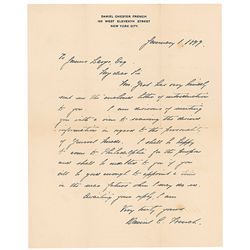 DANIEL CHESTER FRENCH
125 WEST ELEVENTH STREET
NEW YORK CITY.
January 1, 1897.
To James Esq
My dear Sir
Mr. Grant has very kindly
sent me the enclosed letter of introduction
to you. I am desirous of meeting
you with a view to securing the desired
information in regard to the personality
of General Meade. I shall be happy
to come to Philadelphia for this purpose
and shall be grateful to you if you
will be good enough to appoint a time
in the near future when I may do so.
Awaiting your reply I am
Very truly yours
Daniel C. French.